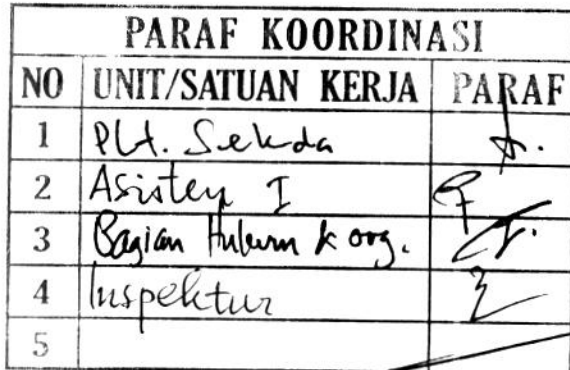 PARAF KOORDINASI
NO UNIT/SATUAN KERJA PARAF
1 Plt. Sekda
2 Asisten I
3 Bagian Hukum & org.
4 Inspektur
5